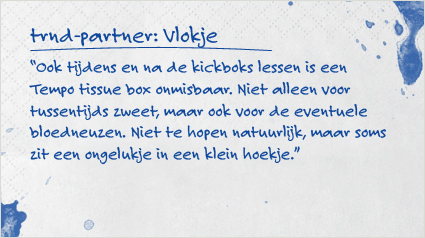 trnd-partner: Vlokje
"Ook tijdens en na de kickboks lessen is een
Tempo tissue box onmisbaar. Niet alleen voor
tussentijds zweet, maar ook voor de eventuele
bloedneuzen. Niet te hopen natuurlijk, maar soms
zit een ongelukje in een klein hoekje."